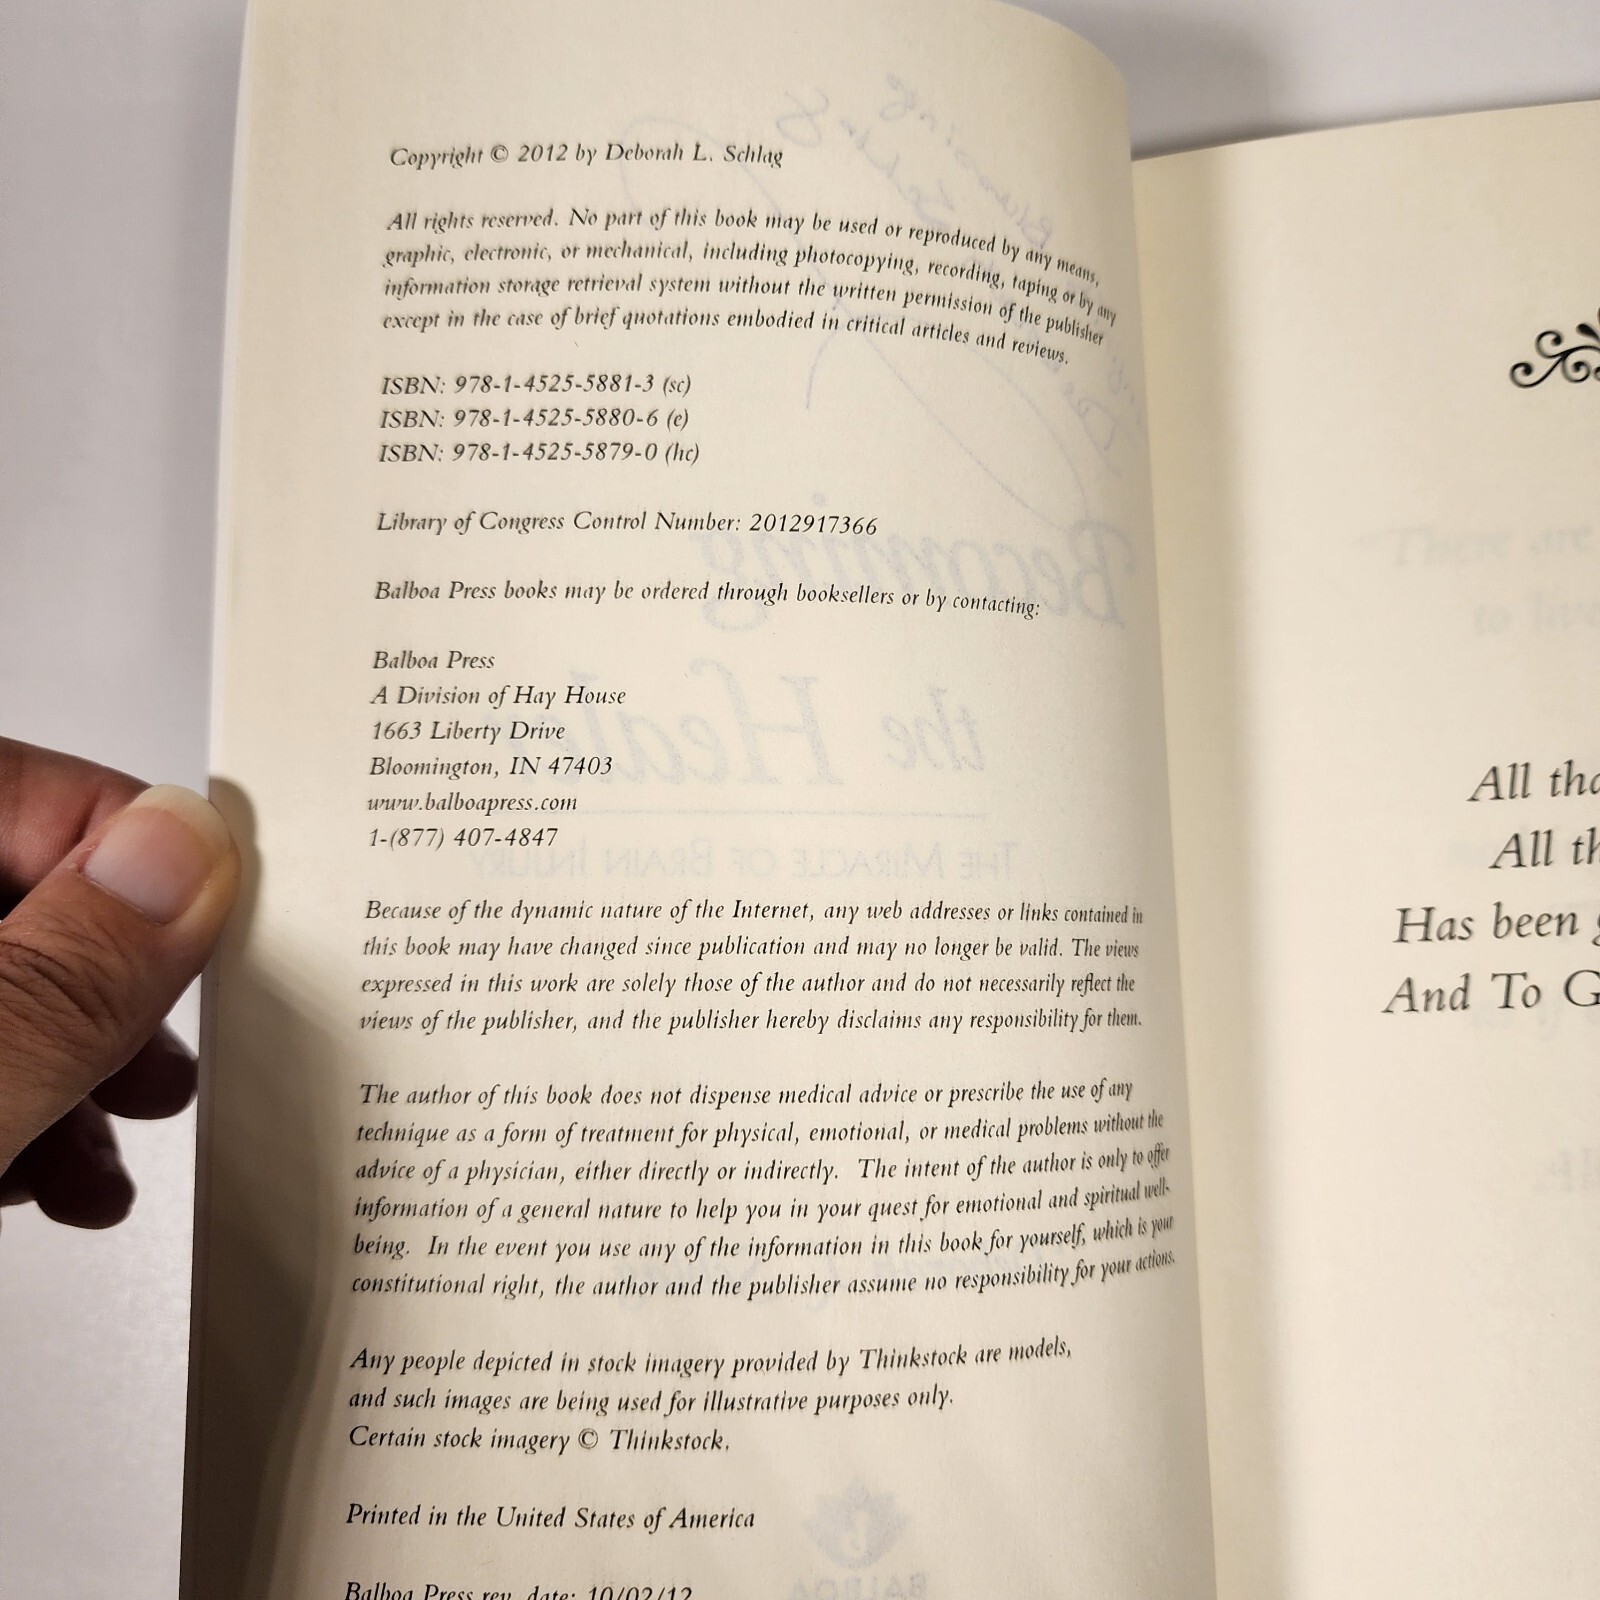 Copyright © 2012 by Deborah L. Schlag
All rights reserved. No part of this book may be used or reproduced by any means,
graphic, electronic, or mechanical, including photocopying, recording, taping or by any
information storage retrieval system without the written permission of the publisher
except in the case of brief quotations embodied in critical articles and reviews.
ISBN: 978-1-4525-5881-3 (sc)
ISBN: 978-1-4525-5880-6 (e)
ISBN: 978-1-4525-5879-0 (hc)
Library of Congress Control Number: 2012917366
Balboa Press books may be ordered through booksellers or by contacting:
Balboa Press
A Division of Hay House
1663 Liberty Drive
Bloomington, IN 47403
www.balboapress.com
1-(877) 407-4847
Because of the dynamic nature of the Internet, any web addresses or links contained in
this book may have changed since publication and may no longer be valid. The views
expressed in this work are solely those of the author and do not necessarily reflect the
views of the publisher, and the publisher hereby disclaims any responsibility for them.
The author of this book does not dispense medical advice or prescribe the use of any
technique as a form of treatment for physical, emotional, or medical problems without the
advice of a physician, either directly or indirectly. The intent of the author is only to offer
information of a general nature to help you in your quest for emotional and spiritual well-
being. In the event you use any of the information in this book for yourself, which is your
constitutional right, the author and the publisher assume no responsibility for your actions.
Any people depicted in stock imagery provided by Thinkstock are models,
and such images are being used for illustrative purposes only.
Certain stock imagery © Thinkstock.
Printed in the United States of America
Balboa Press rev. date: 10/02/12
Becoming
the Healer
THE MIRACLE OF BRAIN INJURY
BALBOA
There are
to live
All tha
All th
Has been
And To G